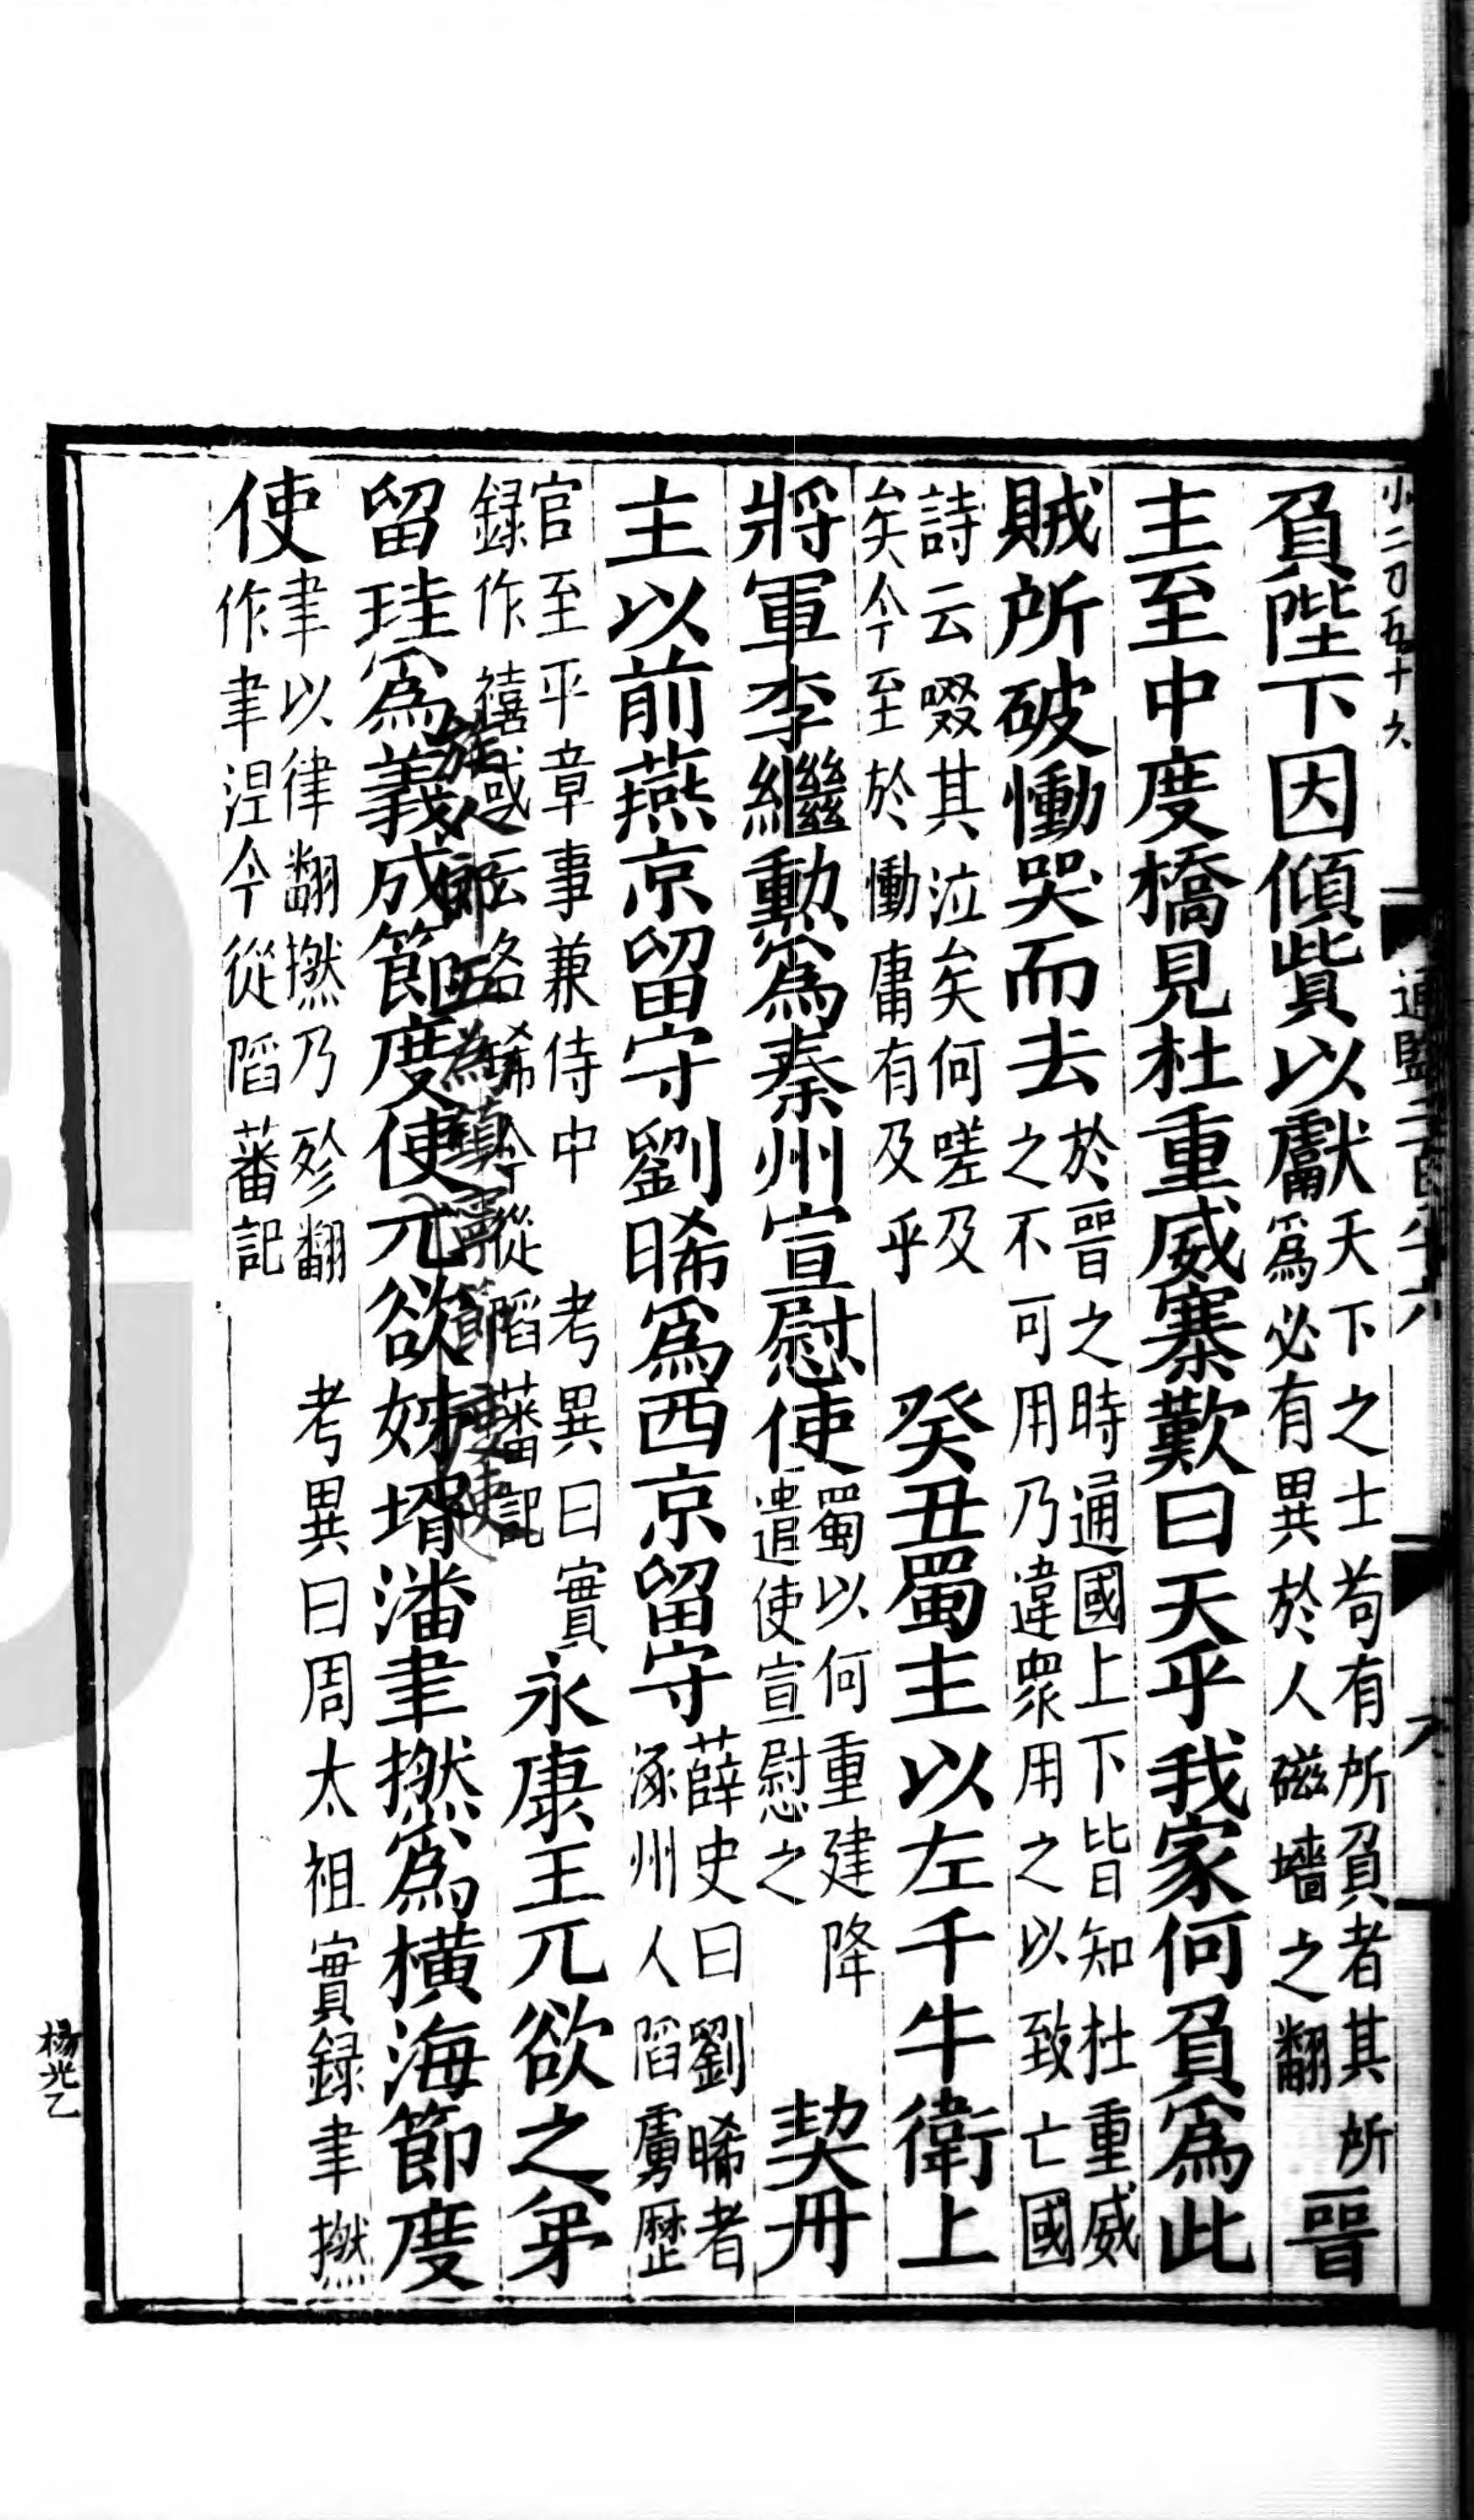 小二刀五十六
通鑑二百八十六
六
負陛下因傾貲以獻天下之士苟有所負者其所爲必有異於人磁墻之翻晉
主至中度橋見杜重威寨歎曰天乎我家何負爲此
賊所破慟哭而去於晉之時通國上下皆知杜重威之不可用乃違衆用之以致亡國
詩云啜其泣矣何嗟及矣今至於慟庸有及乎癸丑蜀主以左千牛衛上
將軍李繼勳爲秦州宣慰使蜀以何重建降遣使宣慰之契丹
主以前燕京留守劉晞爲西京留守薛史曰劉晞者涿州人陷虜歷
官至平章事兼侍中考異曰實録作禧或云名晞今從陷蕃記永康王兀欲之弟
族人郎五為鎮寧節度使
留珪爲義成節度使兀欲姊壻潘聿撚爲橫海節度
使聿以律翻撚乃殄翻考異曰周太祖實録聿撚作聿涅今從陷蕃記
楊光乙